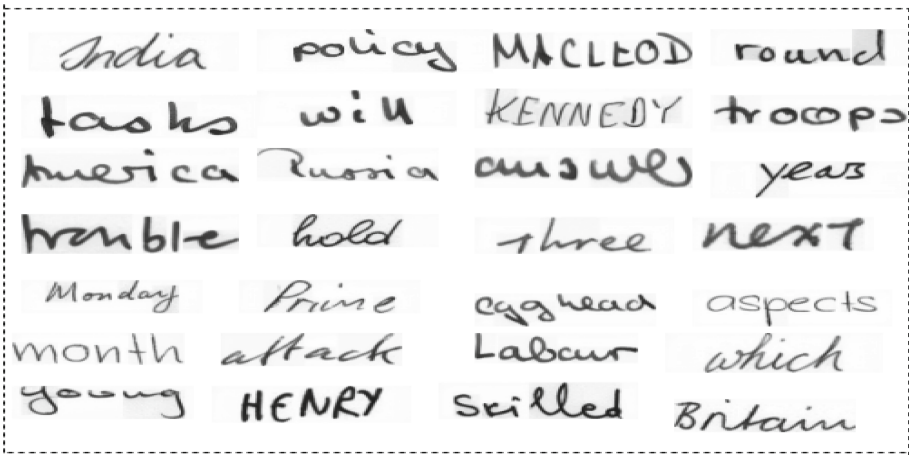 India policy MACLEOD round
tasks will KENNEDY troops
America Russia answer years
trouble hold three next
Monday Prime egghead aspects
month attack Labour which
young HENRY skilled Britain